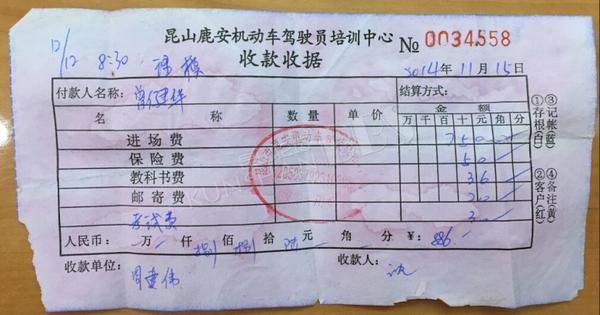 昆山鹿安机动车驾驶员培训中心 № 0034558
12/12 8:30
收款收据
2014年11月15日
付款人名称: 结算方式:
名称 数量 单价 金额
万千百十元角分
进场费 750
保险费 50
教科书费 36
邮寄费 20
考试费
人民币: 万 仟 捌佰 捌拾 陆元 角 分 ¥: 886
收款单位: 收款人:
①存根(白)
③记帐(蓝)
②客户(红)
④备注(黄)